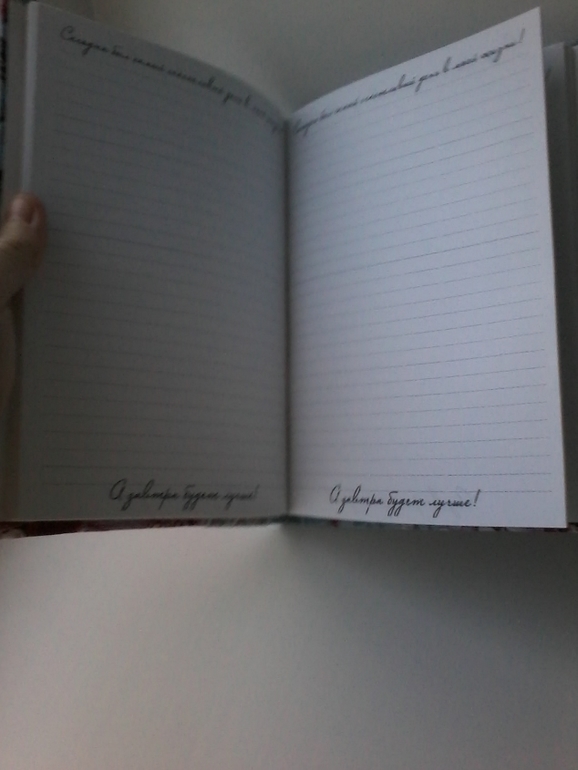 Сегодня был самый счастливый день в моей
Сегодня был самый счастливый день в моей жизни!
А завтра будет лучше!
А завтра будет лучше!